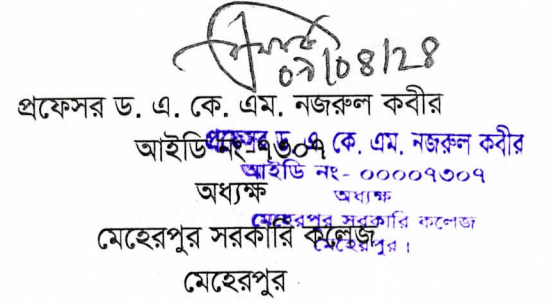 ০৭/০৪/২৪
প্রফেসর ড. এ. কে. এম. নজরুল কবীর
আইডি নং-৭৩০৭
অধ্যক্ষ
মেহেরপুর সরকারি কলেজ
মেহেরপুর
প্রফেসর ড. এ. কে. এম. নজরুল কবীর
আইডি নং- ০০০০৭৩০৭
অধ্যক্ষ
মেহেরপুর সরকারি কলেজ
মেহেরপুর।